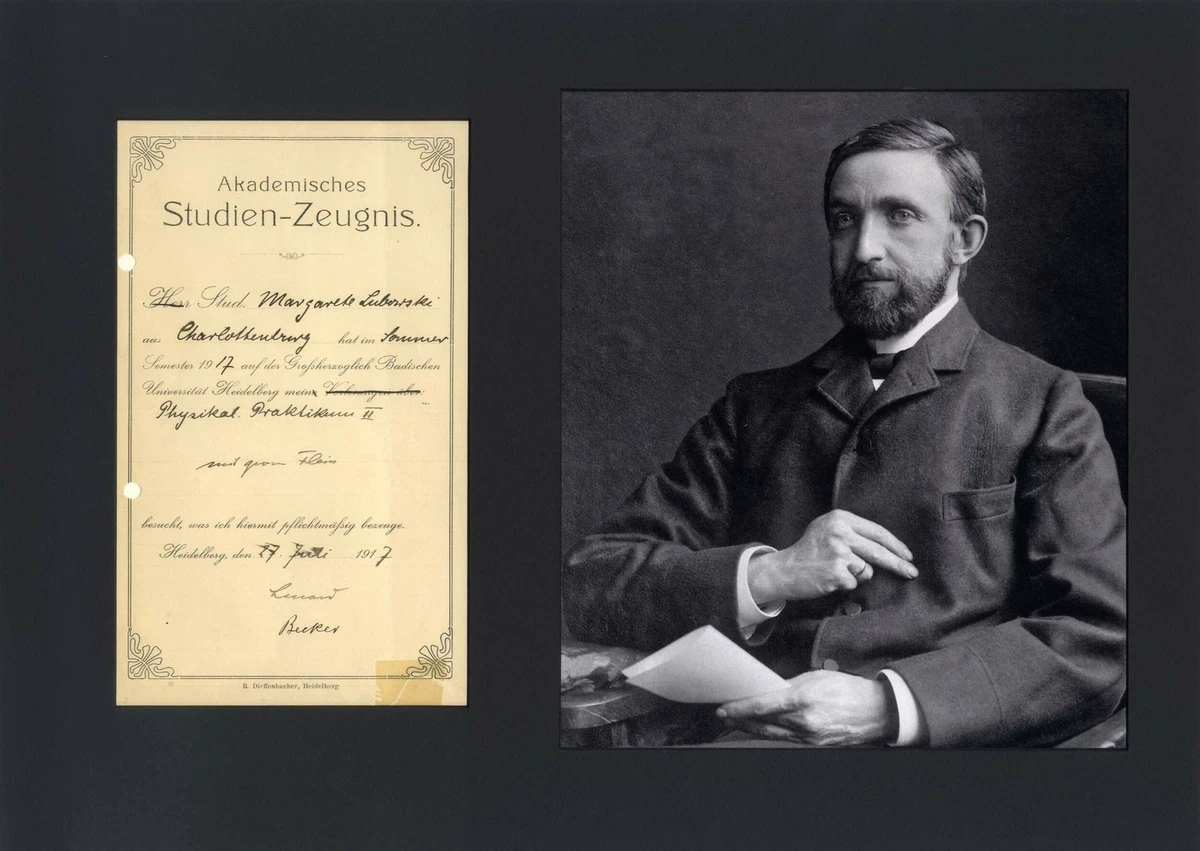 Akademisches
Studien-Zeugnis.
Herr Stud. Margarete Lubowski
aus Charlottenburg hat im Sommer
Semester 1917 auf der Großherzoglich Badischen
Universität Heidelberg mein Vorlesungen über:
Physikal. Praktikum II
mit
besucht, was ich hiermit pflichtmäßig bezeuge.
Heidelberg, den 27. Juli 1917
Lenard
Becker
R. Dieffenbacher, Heidelberg